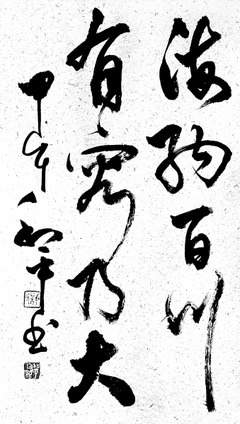 海纳百川
有容乃大
甲午和平书